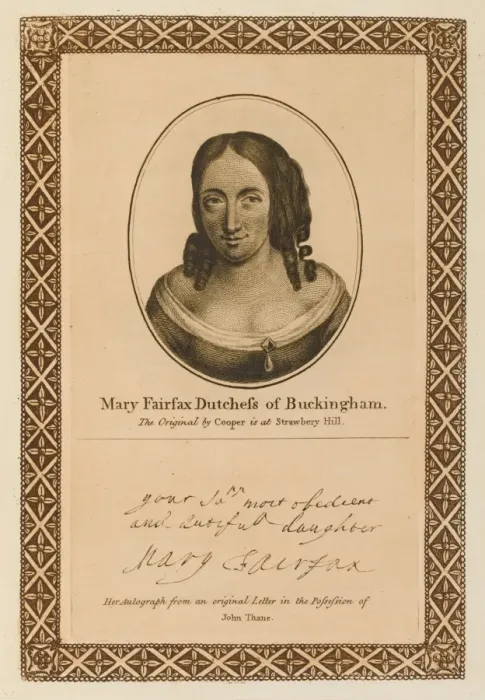 Mary Fairfax Dutcheſs of Buckingham.
The Original by Cooper is at Strawbery Hill.
your
most obedient
and dutifull daughter
Mary Fairfax
Her Autograph from an original Letter in the Poſſeſſion of
John Thane.